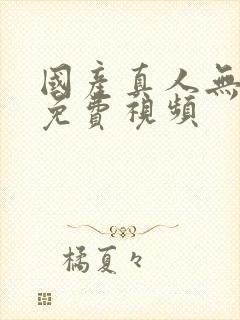 國產真人無
免費視頻
橘夏々